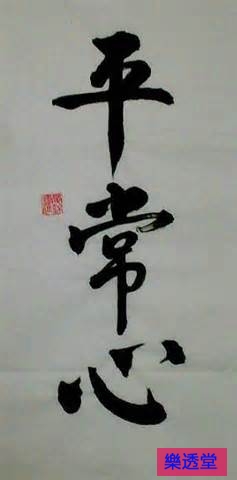 平常心
樂透堂